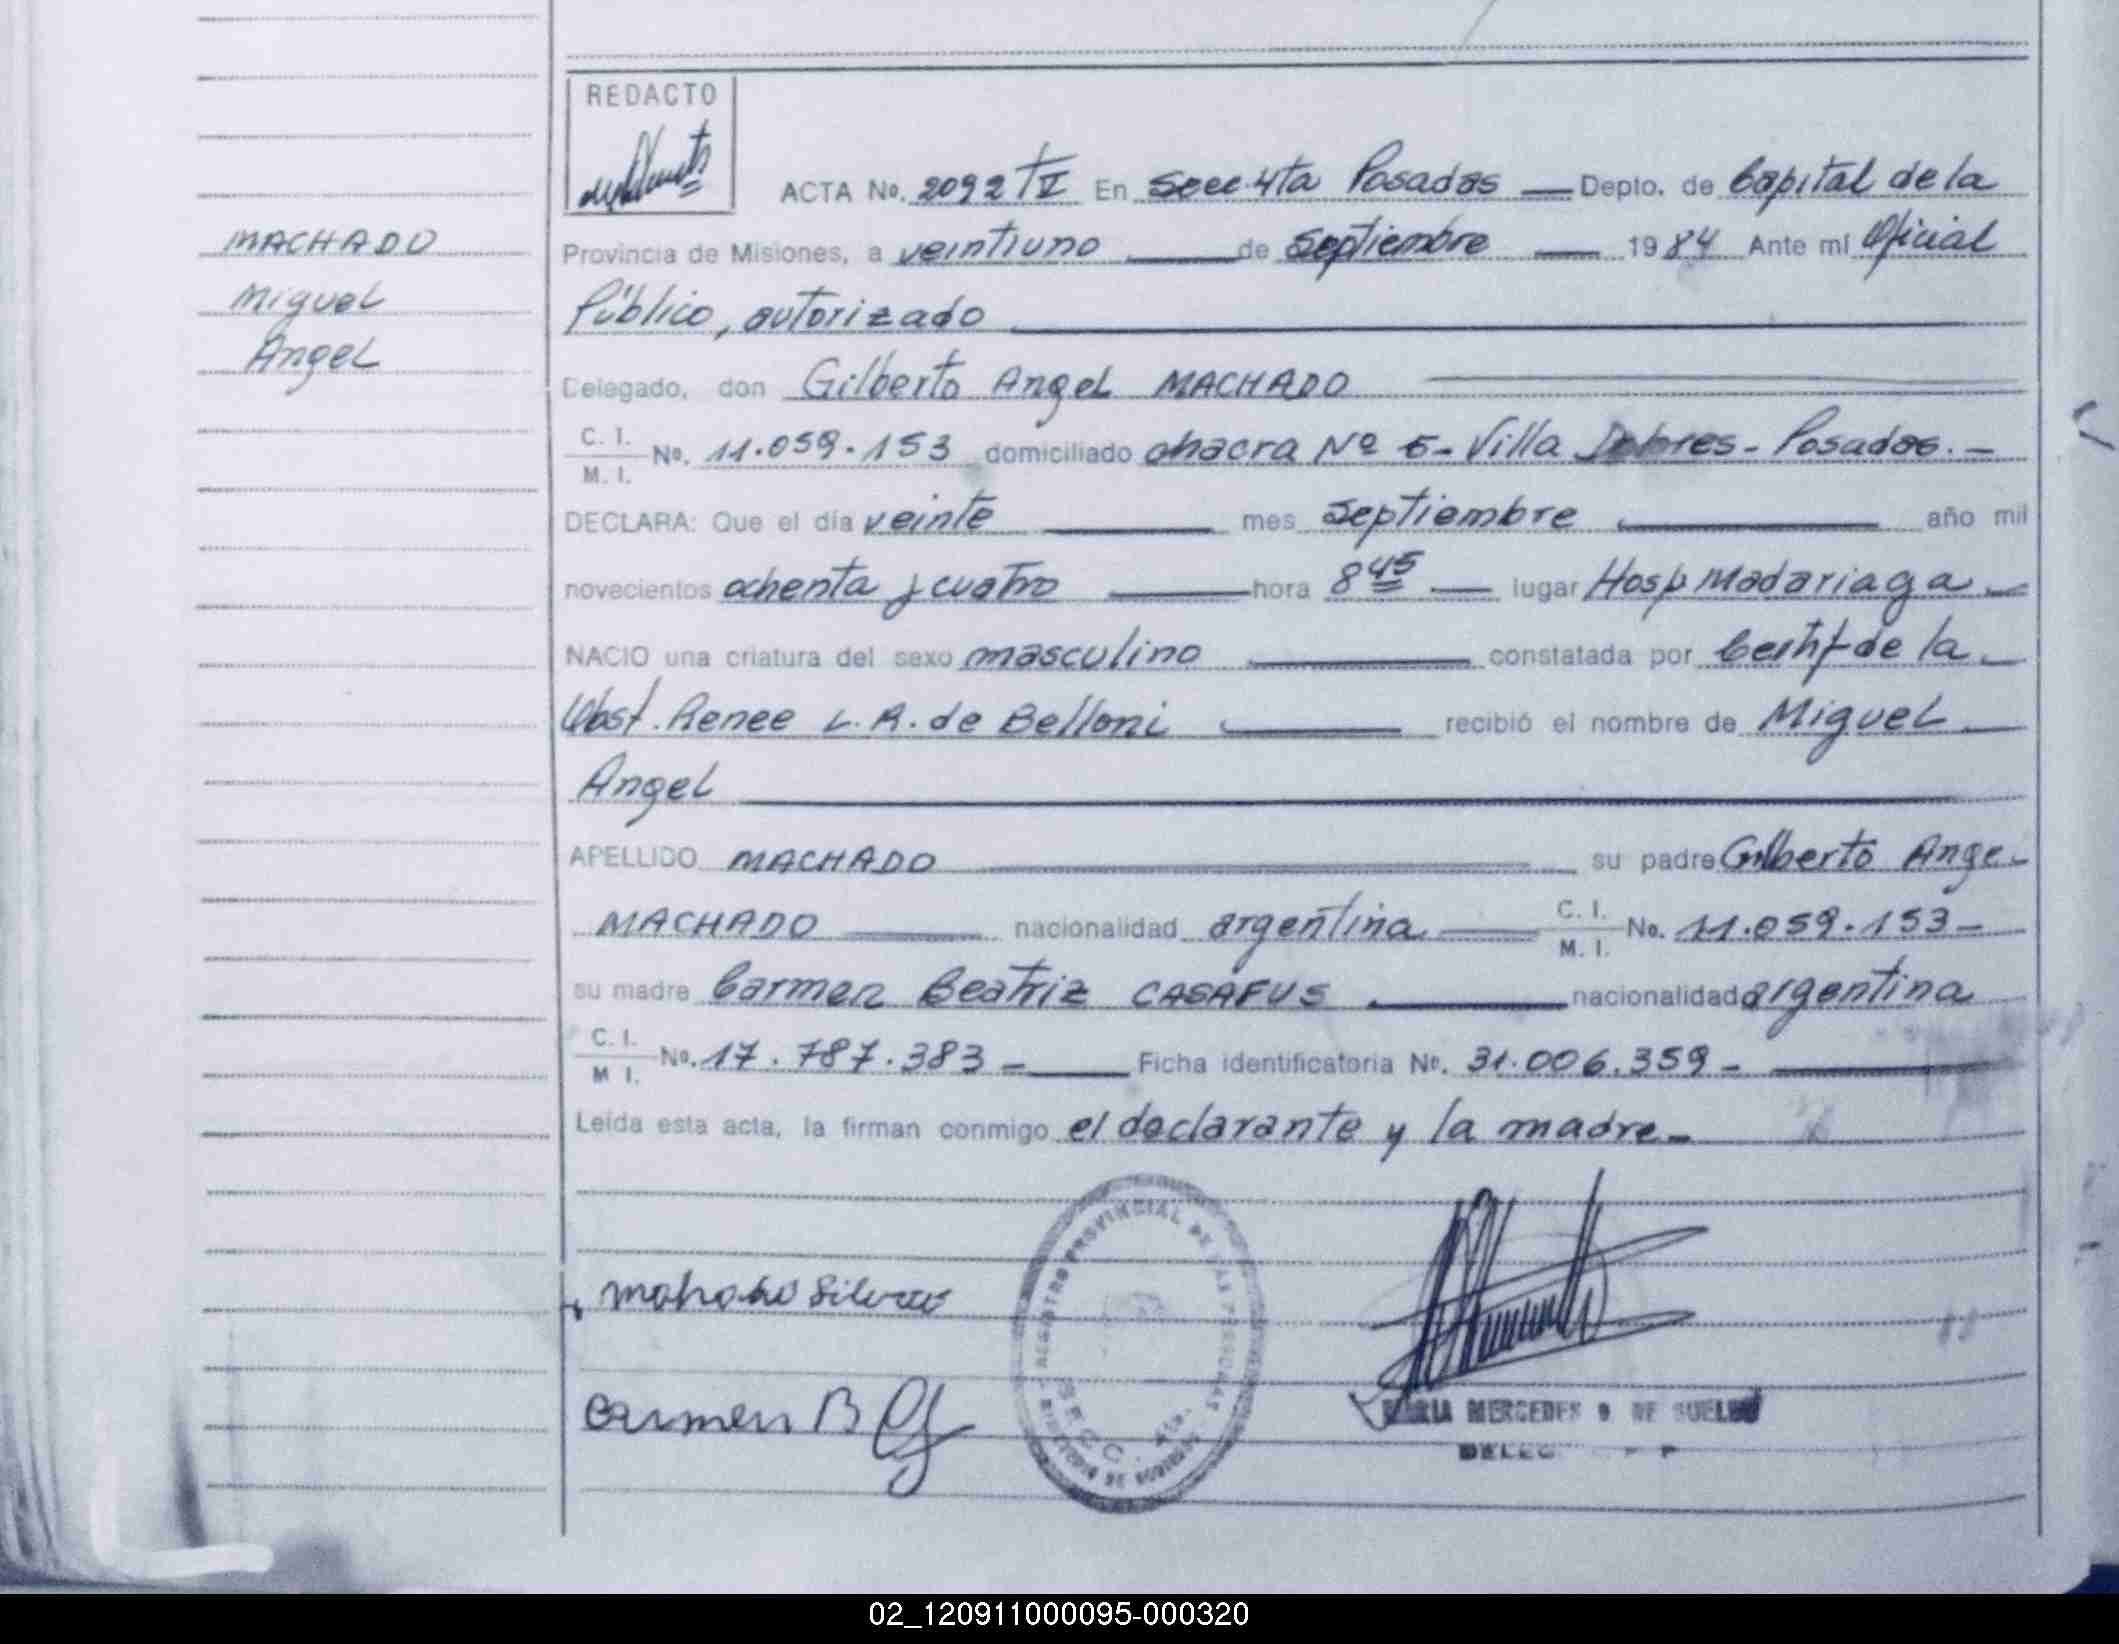 REDACTO
ACTA No. 2092 TV En Secc. 4ta Posadas — Depto. de Capital de la
MACHADO
Provincia de Misiones, a veintiuno de Septiembre 1984 Ante mí Oficial
Miguel
Público, autorizado
Angel
Delegado, don Gilberto Angel MACHADO
C. I.
M. I.
No. 11.059.153 domiciliado chacra Nº 5 - Villa Dolores - Posadas. -
DECLARA: Que el día veinte mes septiembre año mil
novecientos ochenta y cuatro hora 8 45 lugar Hosp Madariaga
NACIO una criatura del sexo masculino constatada por Certif de la
Obst. Renee L. R. de Belloni recibió el nombre de Miguel
Angel
APELLIDO MACHADO su padre Gilberto Ange-
MACHADO nacionalidad argentina C. I. M. I. No. 11.059.153-
su madre Carmen Beatriz CASAFUS nacionalidad argentina
C. I. M I. No. 17.787.383 - Ficha identificatoria No. 31.006.359 -
Leída esta acta, la firman conmigo el declarante y la madre-
REGISTRO PROVINCIAL DE LAS PERSONAS
SECC. 4ta.
Carmen B
MARIA MERCEDES DE
02_120911000095-000320